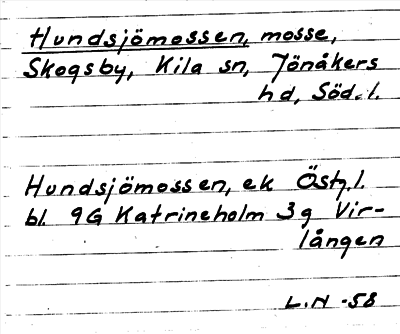 Hundsjömossen, mosse,
Skogsby, Kila sn, Jönåkers
hd, Söd.l.
Hundsjömossen, ek Östg.l.
bl. 9G Katrineholm 3g Vir-
lången
L.N -58